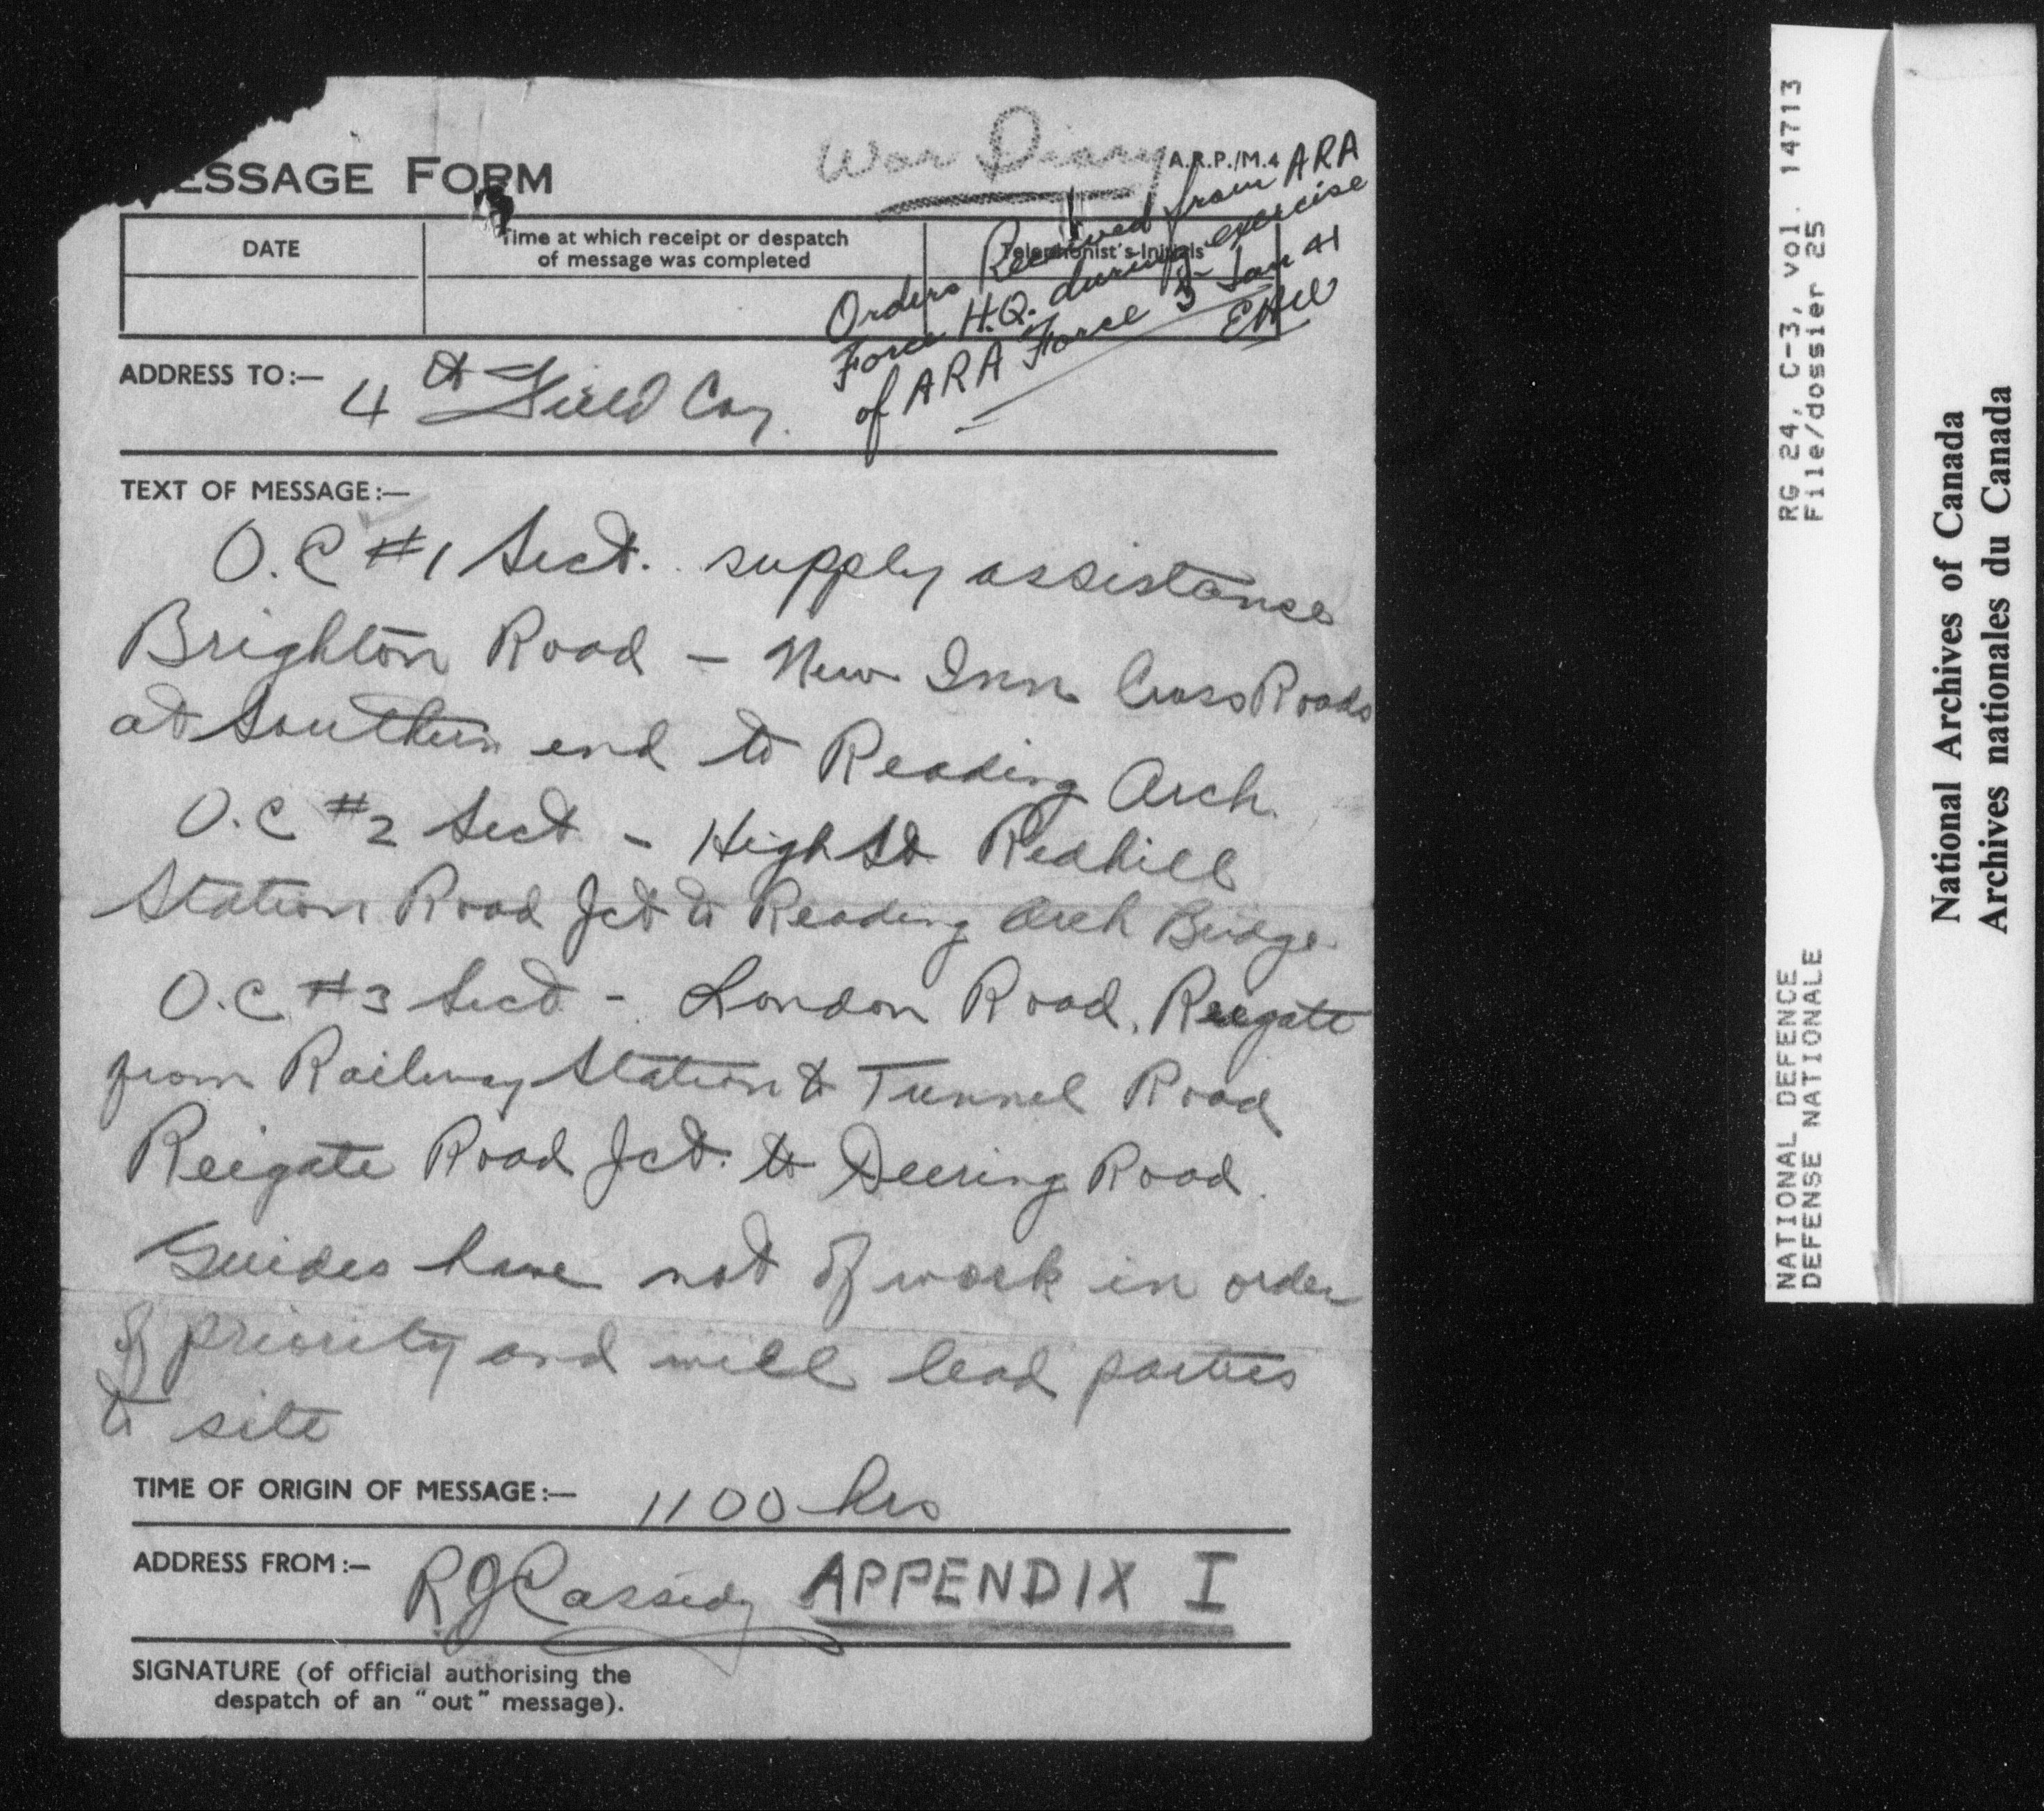 ESSAGE FORM
War Diary
A.R.P./M.4
Orders Received from ARA
Force H.Q. during exercise
of ARA Force 3 Jan 41
DATE
Time at which receipt or despatch
of message was completed
Telephonist's Initials
ADDRESS TO:—
4th Field Coy.
TEXT OF MESSAGE:—
O.C #1 Sect. supply assistance
Brighton Road – New Inn Cross Roads
at Southern end to Reading Arch.
O.C #2 Sect – High St Redhill
Station Road Jct to Reading Arch Bridge
O.C #3 Sect – London Road, Reigate
from Railway Station to Tunnel Road
Reigate Road Jct. to Deering Road.
Guides have not of work in order
of priority and will lead parties
to site
TIME OF ORIGIN OF MESSAGE:— 1100 hrs
ADDRESS FROM:— RJCassidy APPENDIX I
SIGNATURE (of official authorising the
despatch of an "out" message).
RG 24, C-3, vol. 14713
File/dossier 25
NATIONAL DEFENCE
DEFENSE NATIONALE
National Archives of Canada
Archives nationales du Canada